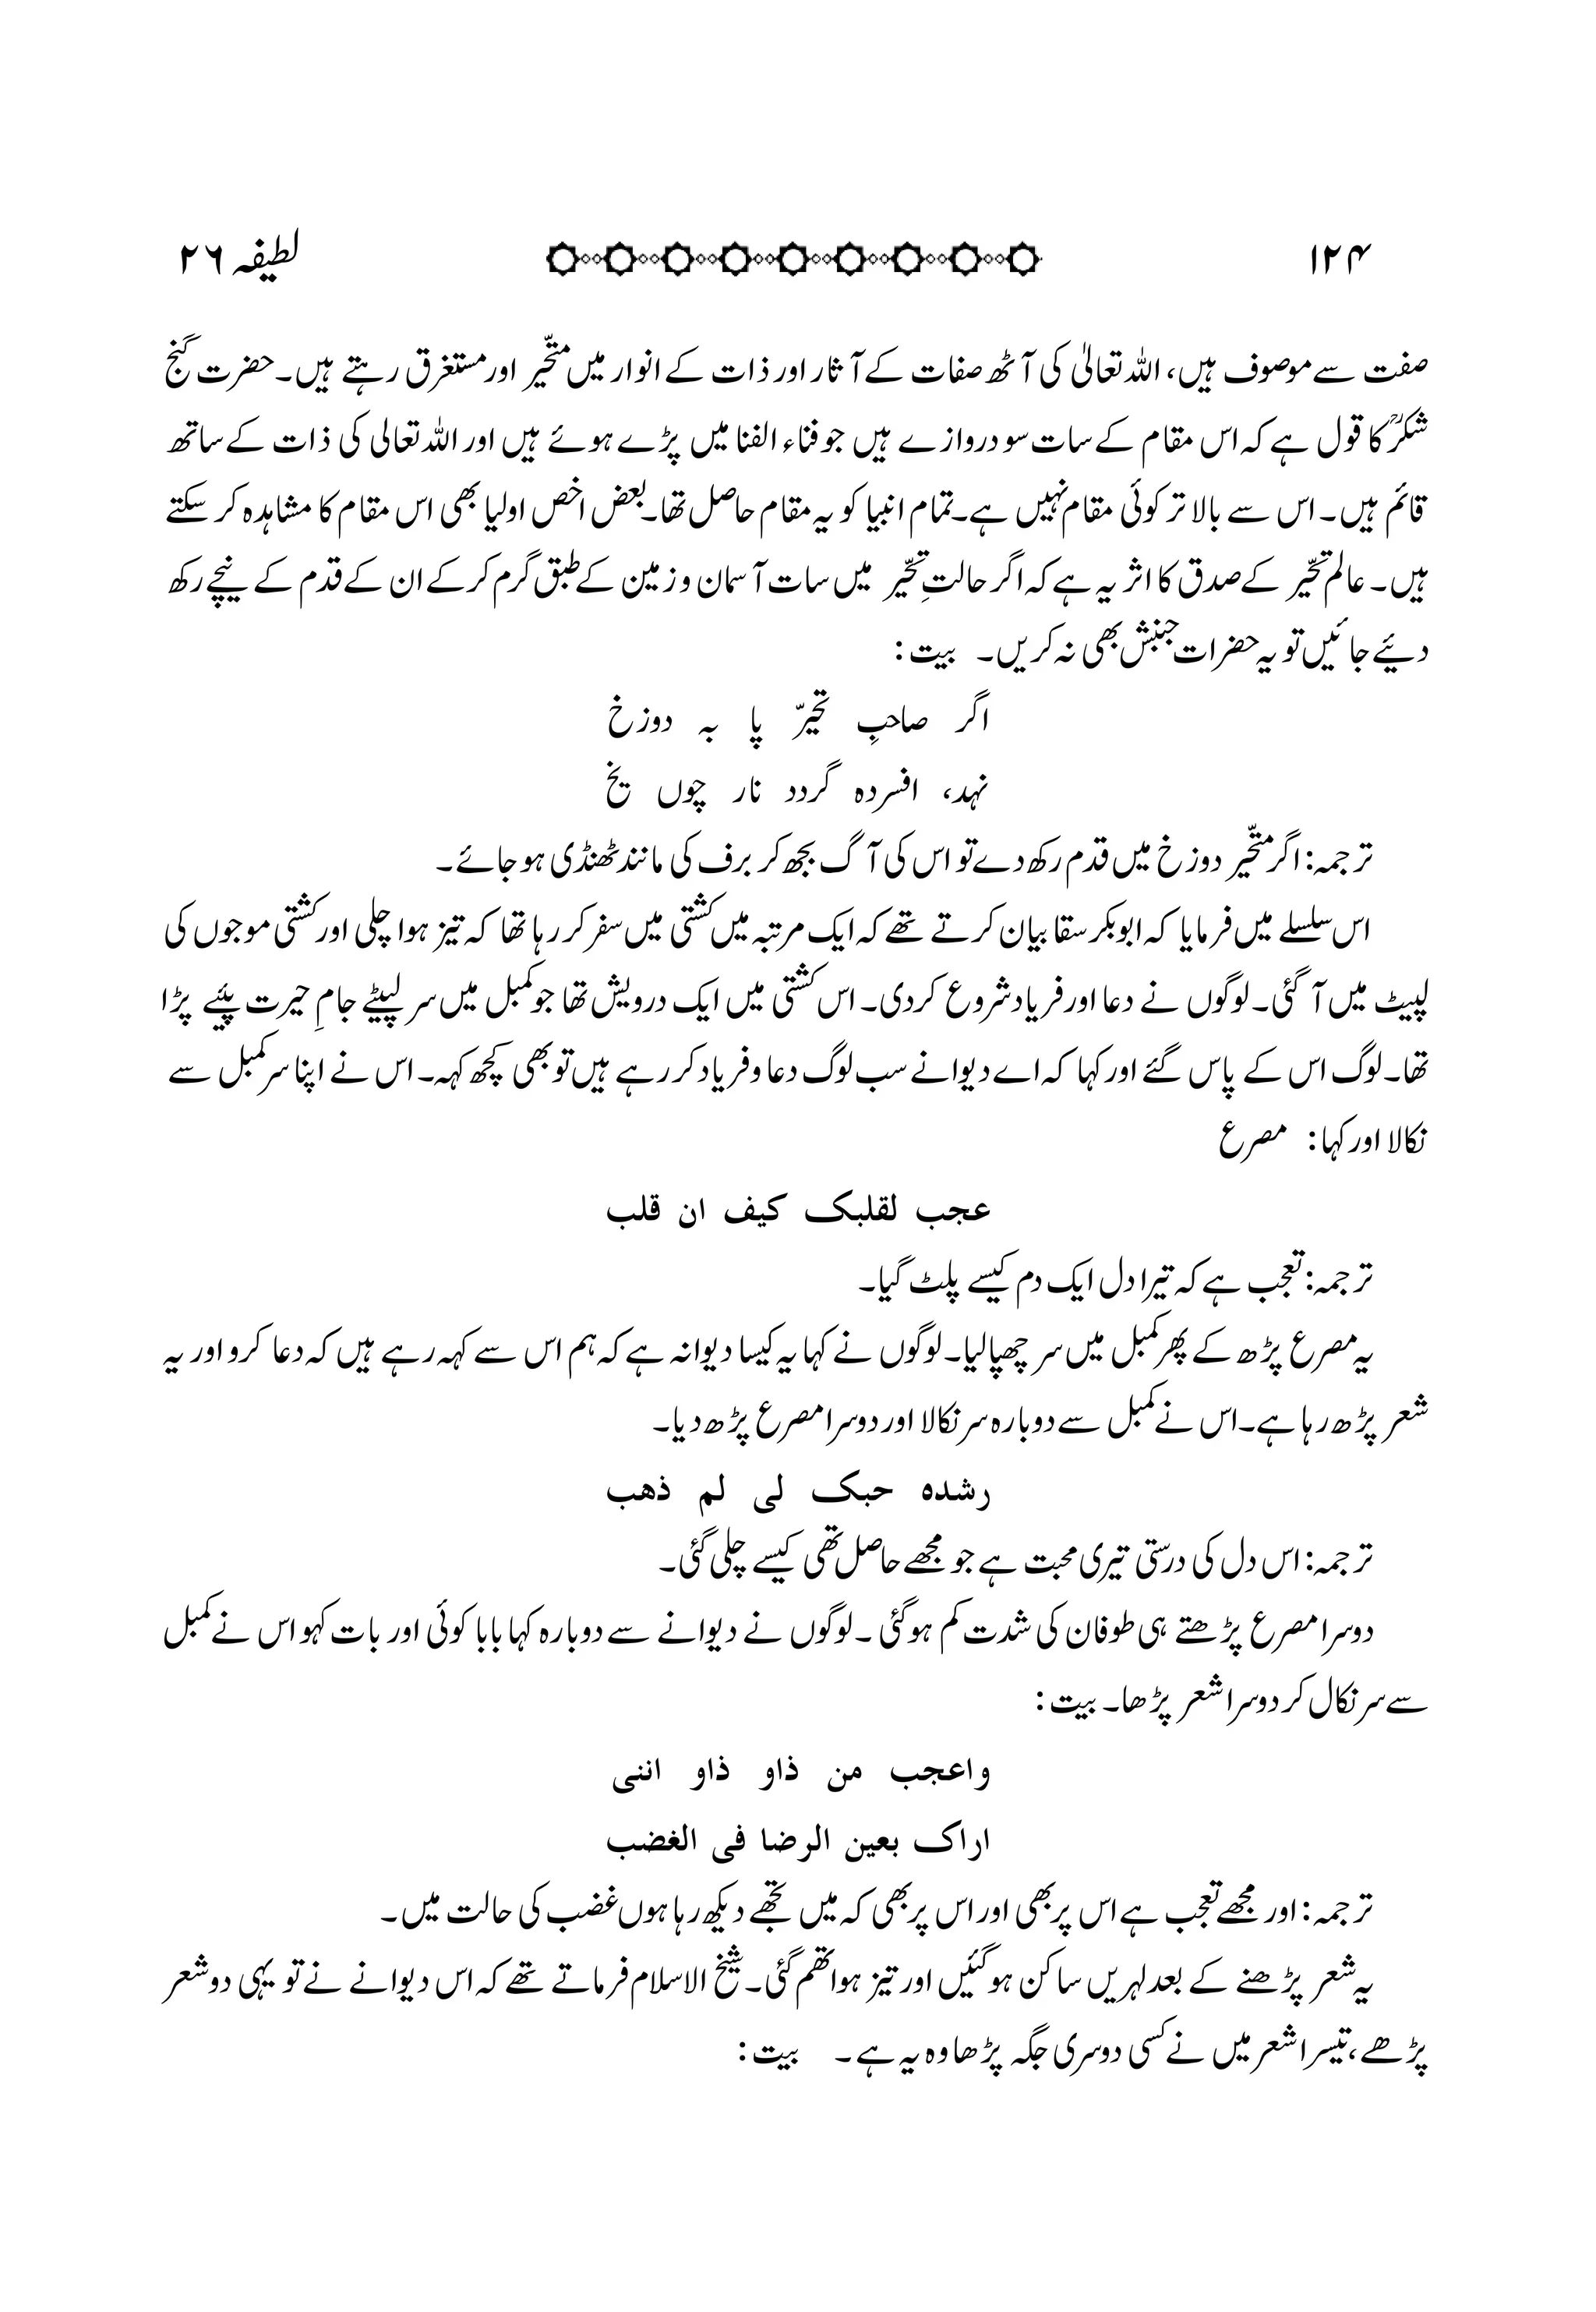 ۱۲۴ لطیفہ ۲۶
صفت سے موصوف ہیں، اللہ تعالیٰ کی آٹھ صفات کے آثار اور ذات کے انوار میں متحیّر اور مستغرق رہتے ہیں۔ حضرت گنج
شکرؒ کا قول ہے کہ اس مقام کے سات سو دروازے ہیں جو فناء الفنا میں پڑے ہوئے ہیں اور اللہ تعالی کی ذات کے ساتھ
قائم ہیں۔ اس سے بالا تر کوئی مقام نہیں ہے۔ تمام انبیا کو یہ مقام حاصل تھا۔ بعض اخص اولیا بھی اس مقام کا مشاہدہ کر سکتے
ہیں۔ عالم تحیّر کے صدق کا اثر یہ ہے کہ اگر حالتِ تحیّر میں سات آسمان و زمین کے طبق گرم کرکے ان کے قدم کے نیچے رکھ
دیئے جائیں تو یہ حضرات جنبش بھی نہ کریں۔ بیت:
اگر صاحبِ تحیرّ پا بہ دوزخ
نہد، افسردہ گردد نار چوں یخ
ترجمہ: اگر متحیّر دوزخ میں قدم رکھ دے تو اس کی آگ بجھ کر برف کی مانند ٹھنڈی ہو جائے۔
اس سلسلے میں فرمایا کہ ابوبکر سقا بیان کرتے تھے کہ ایک مرتبہ میں کشتی میں سفر کر رہا تھا کہ تیز ہوا چلی اور کشتی موجوں کی
لپیٹ میں آ گئی۔ لوگوں نے دعا اور فریاد شروع کردی۔ اس کشتی میں ایک درویش تھا جو کمبل میں سر لپیٹے جامِ حیرت پیئے پڑا
تھا۔ لوگ اس کے پاس گئے اور کہا کہ اے دیوانے سب لوگ دعا و فریاد کر رہے ہیں تو بھی کچھ کہہ۔ اس نے اپنا سر کمبل سے
نکالا اور کہا: مصرع
عجب لقلبک کیف ان قلب
ترجمہ: تعجب ہے کہ تیرا دل ایک دم کیسے پلٹ گیا۔
یہ مصرع پڑھ کے پھر کمبل میں سر چھپالیا۔ لوگوں نے کہا یہ کیسا دیوانہ ہے کہ ہم اس سے کہہ رہے ہیں کہ دعا کرو اور یہ
شعر پڑھ رہا ہے۔ اس نے کمبل سے دوبارہ سر نکالا اور دوسرا مصرع پڑھ دیا۔
رشدہ حبک لی لم ذھب
ترجمہ: اس دل کی درستی تیری محبت ہے جو مجھے حاصل تھی کیسے چلی گئی۔
دوسرا مصرع پڑھتے ہی طوفان کی شدت کم ہوگئی۔ لوگوں نے دیوانے سے دوبارہ کہا بابا کوئی اور بات کہو اس نے کمبل
سے سر نکال کر دوسرا شعر پڑھا۔ بیت:
واعجب من ذاو ذاو اننی
اراک بعین الرضا فی الغضب
ترجمہ: اور مجھے تعجب ہے اس پر بھی اور اس پر بھی کہ میں تجھے دیکھ رہا ہوں غضب کی حالت میں۔
یہ شعر پڑھنے کے بعد لہریں ساکن ہوگئیں اور تیز ہوا تھم گئی۔ شیخ الاسلام فرماتے تھے کہ اس دیوانے نے تو یہی دو شعر
پڑھے، تیسرا شعر میں نے کسی دوسری جگہ پڑھا وہ یہ ہے۔ بیت: